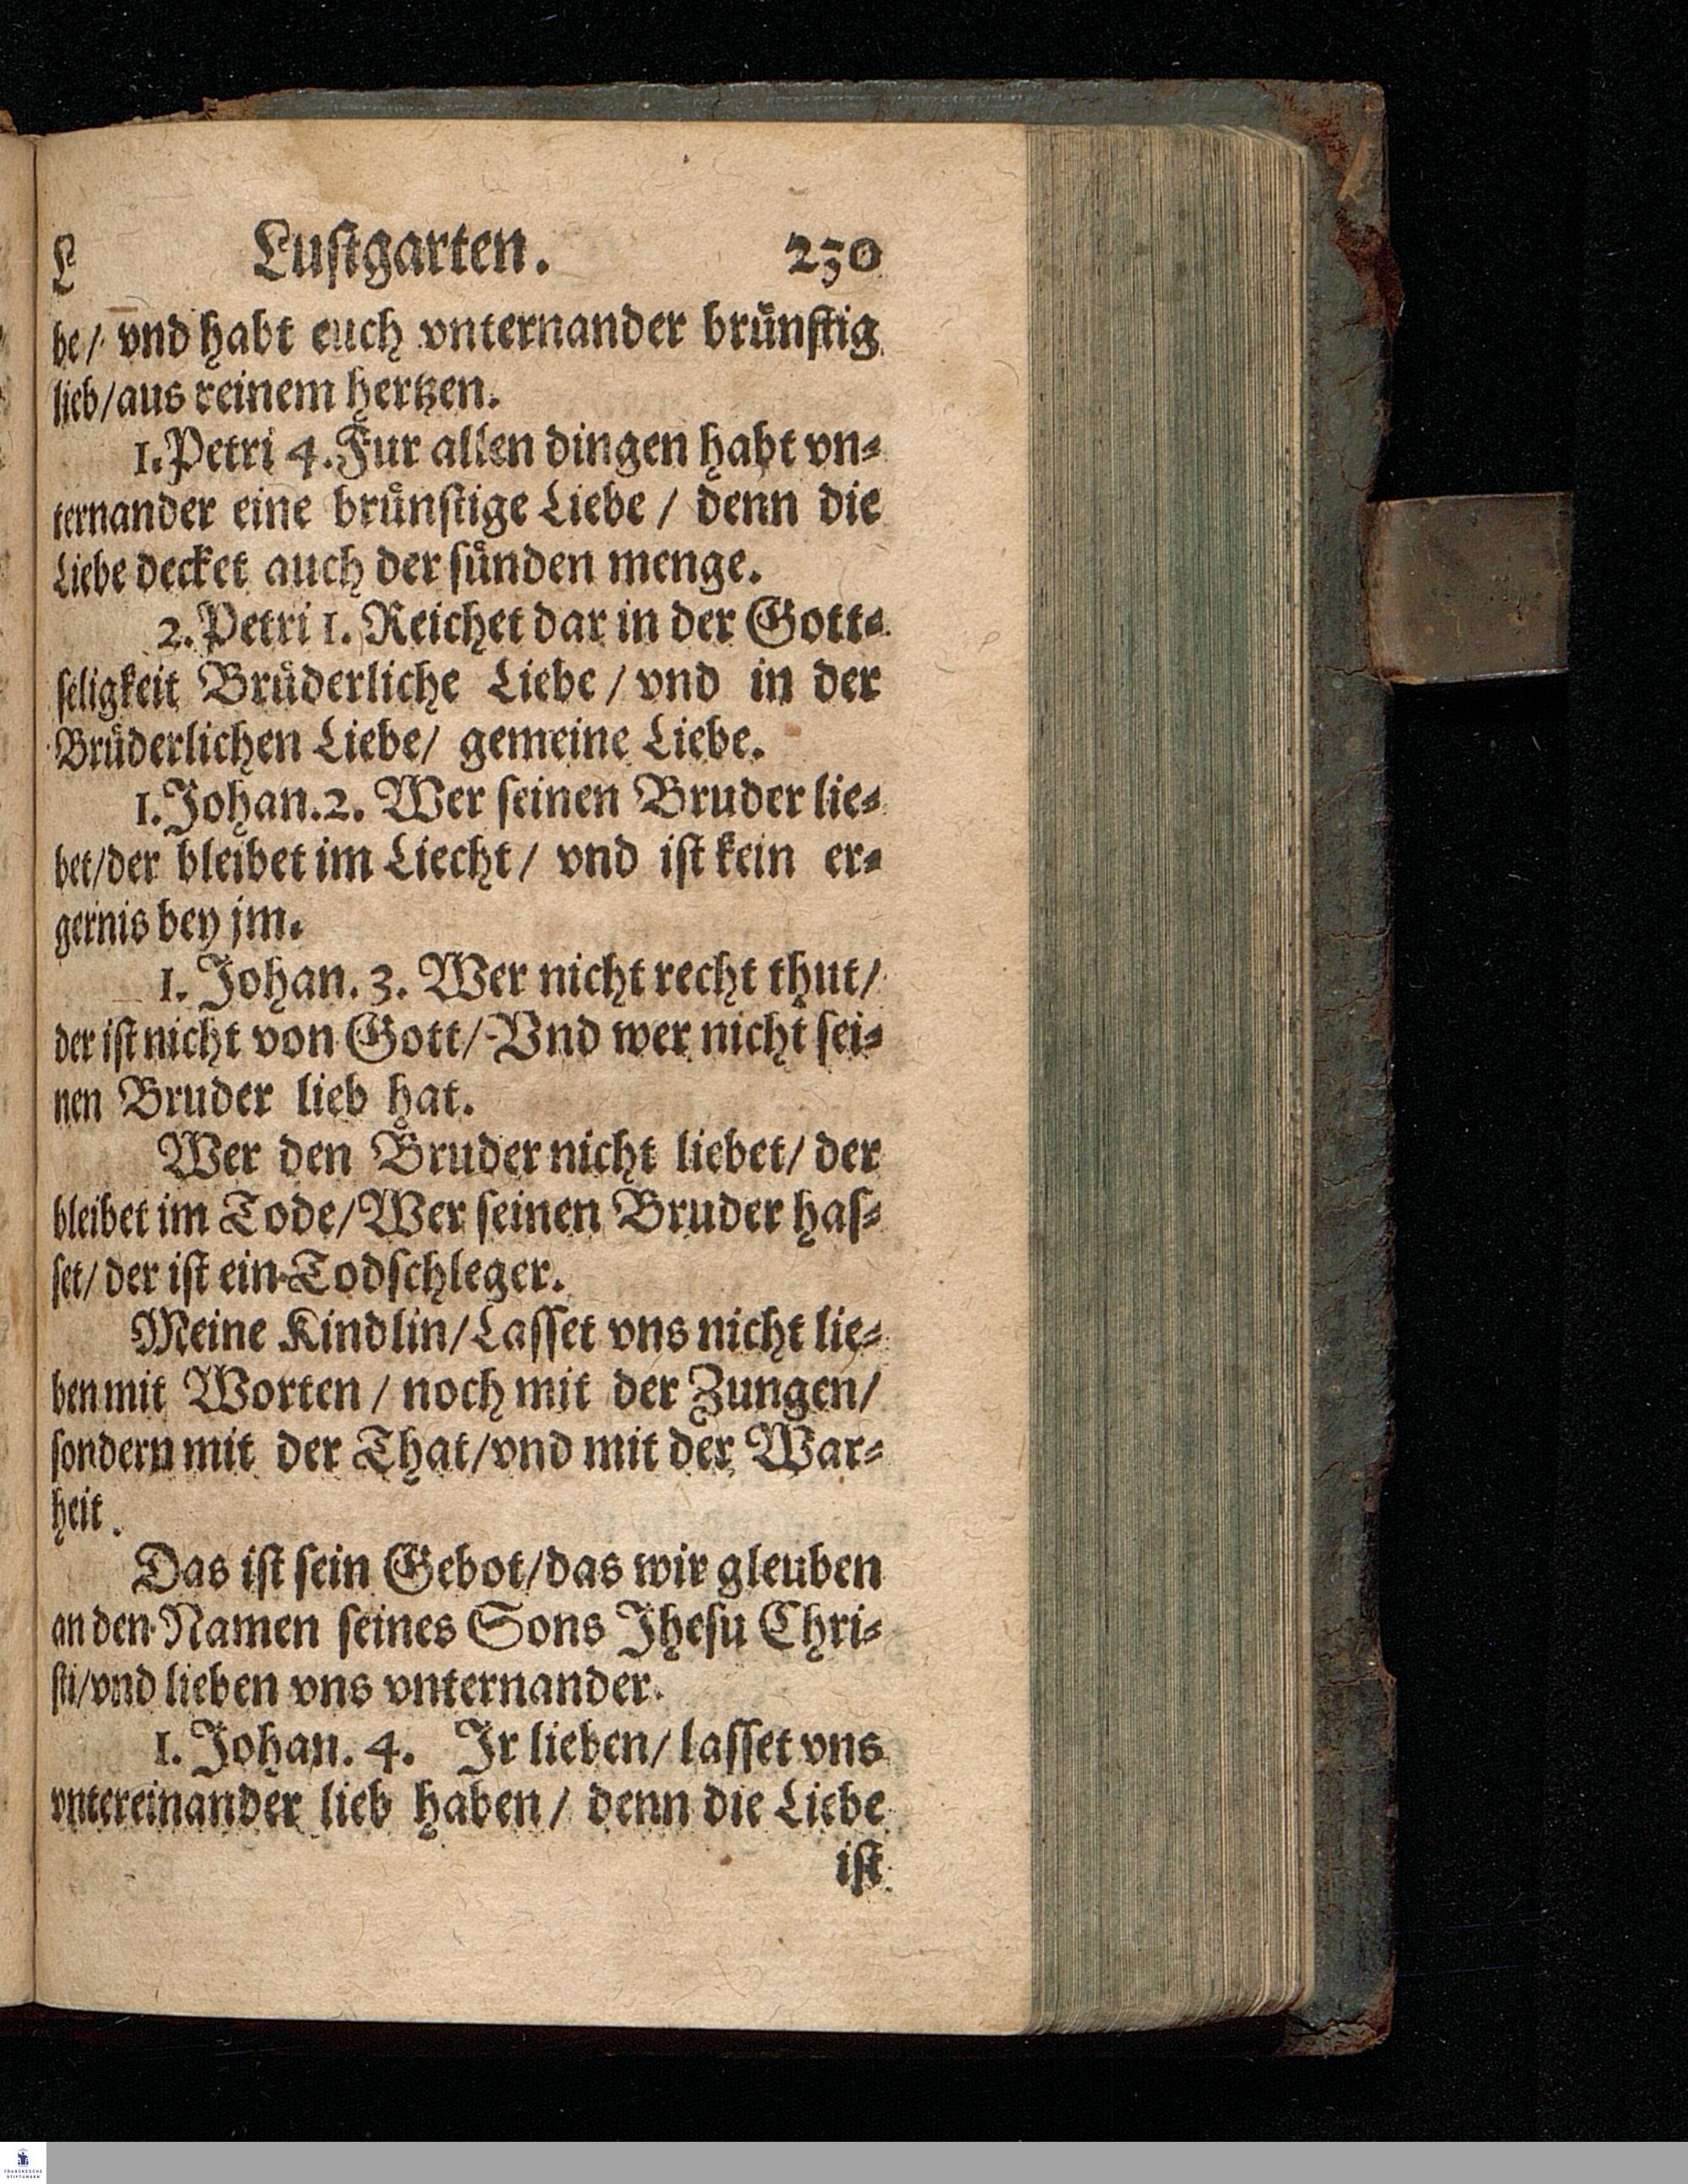 L Lustgarten. 230
be/ vnd habt euch vnternander bruͤnſtig
lieb/aus reinem hertzen.
1.Petri 4.Fur allen dingen habt vn⸗
ternander eine bruͤnſtige Liebe / denn die
Liebe decket auch der ſuͤnden menge.
2.Petri 1. Reichet dar in der Gott⸗
ſeligkeit Bruͤderliche Liebe / vnd in der
Bruͤderlichen Liebe/ gemeine Liebe.
1.Johan.2. Wer ſeinen Bruder lie⸗
bet/der bleibet im Liecht / vnd iſt kein er⸗
gernis bey jm.
1. Johan. 3. Wer nicht recht thut/
der iſt nicht von Gott/ Vnd wer nicht ſei⸗
nen Bruder lieb hat.
Wer den Bruder nicht liebet/ der
bleibet im Tode/Wer ſeinen Bruder haſ⸗
ſet/ der iſt ein Todſchleger.
Meine Kindlin/Laſſet vns nicht lie⸗
ben mit Worten / noch mit der Zungen/
ſondern mit der That/vnd mit der War⸗
heit.
Das iſt ſein Gebot/das wir gleuben
an den Namen ſeines Sons Jheſu Chri⸗
ſti/vnd lieben vns vnternander.
1. Johan. 4. Jr lieben/ laſſet vns
vntereinander lieb haben / denn die Liebe
iſt
FRANCKESCHE
STIFTUNGEN